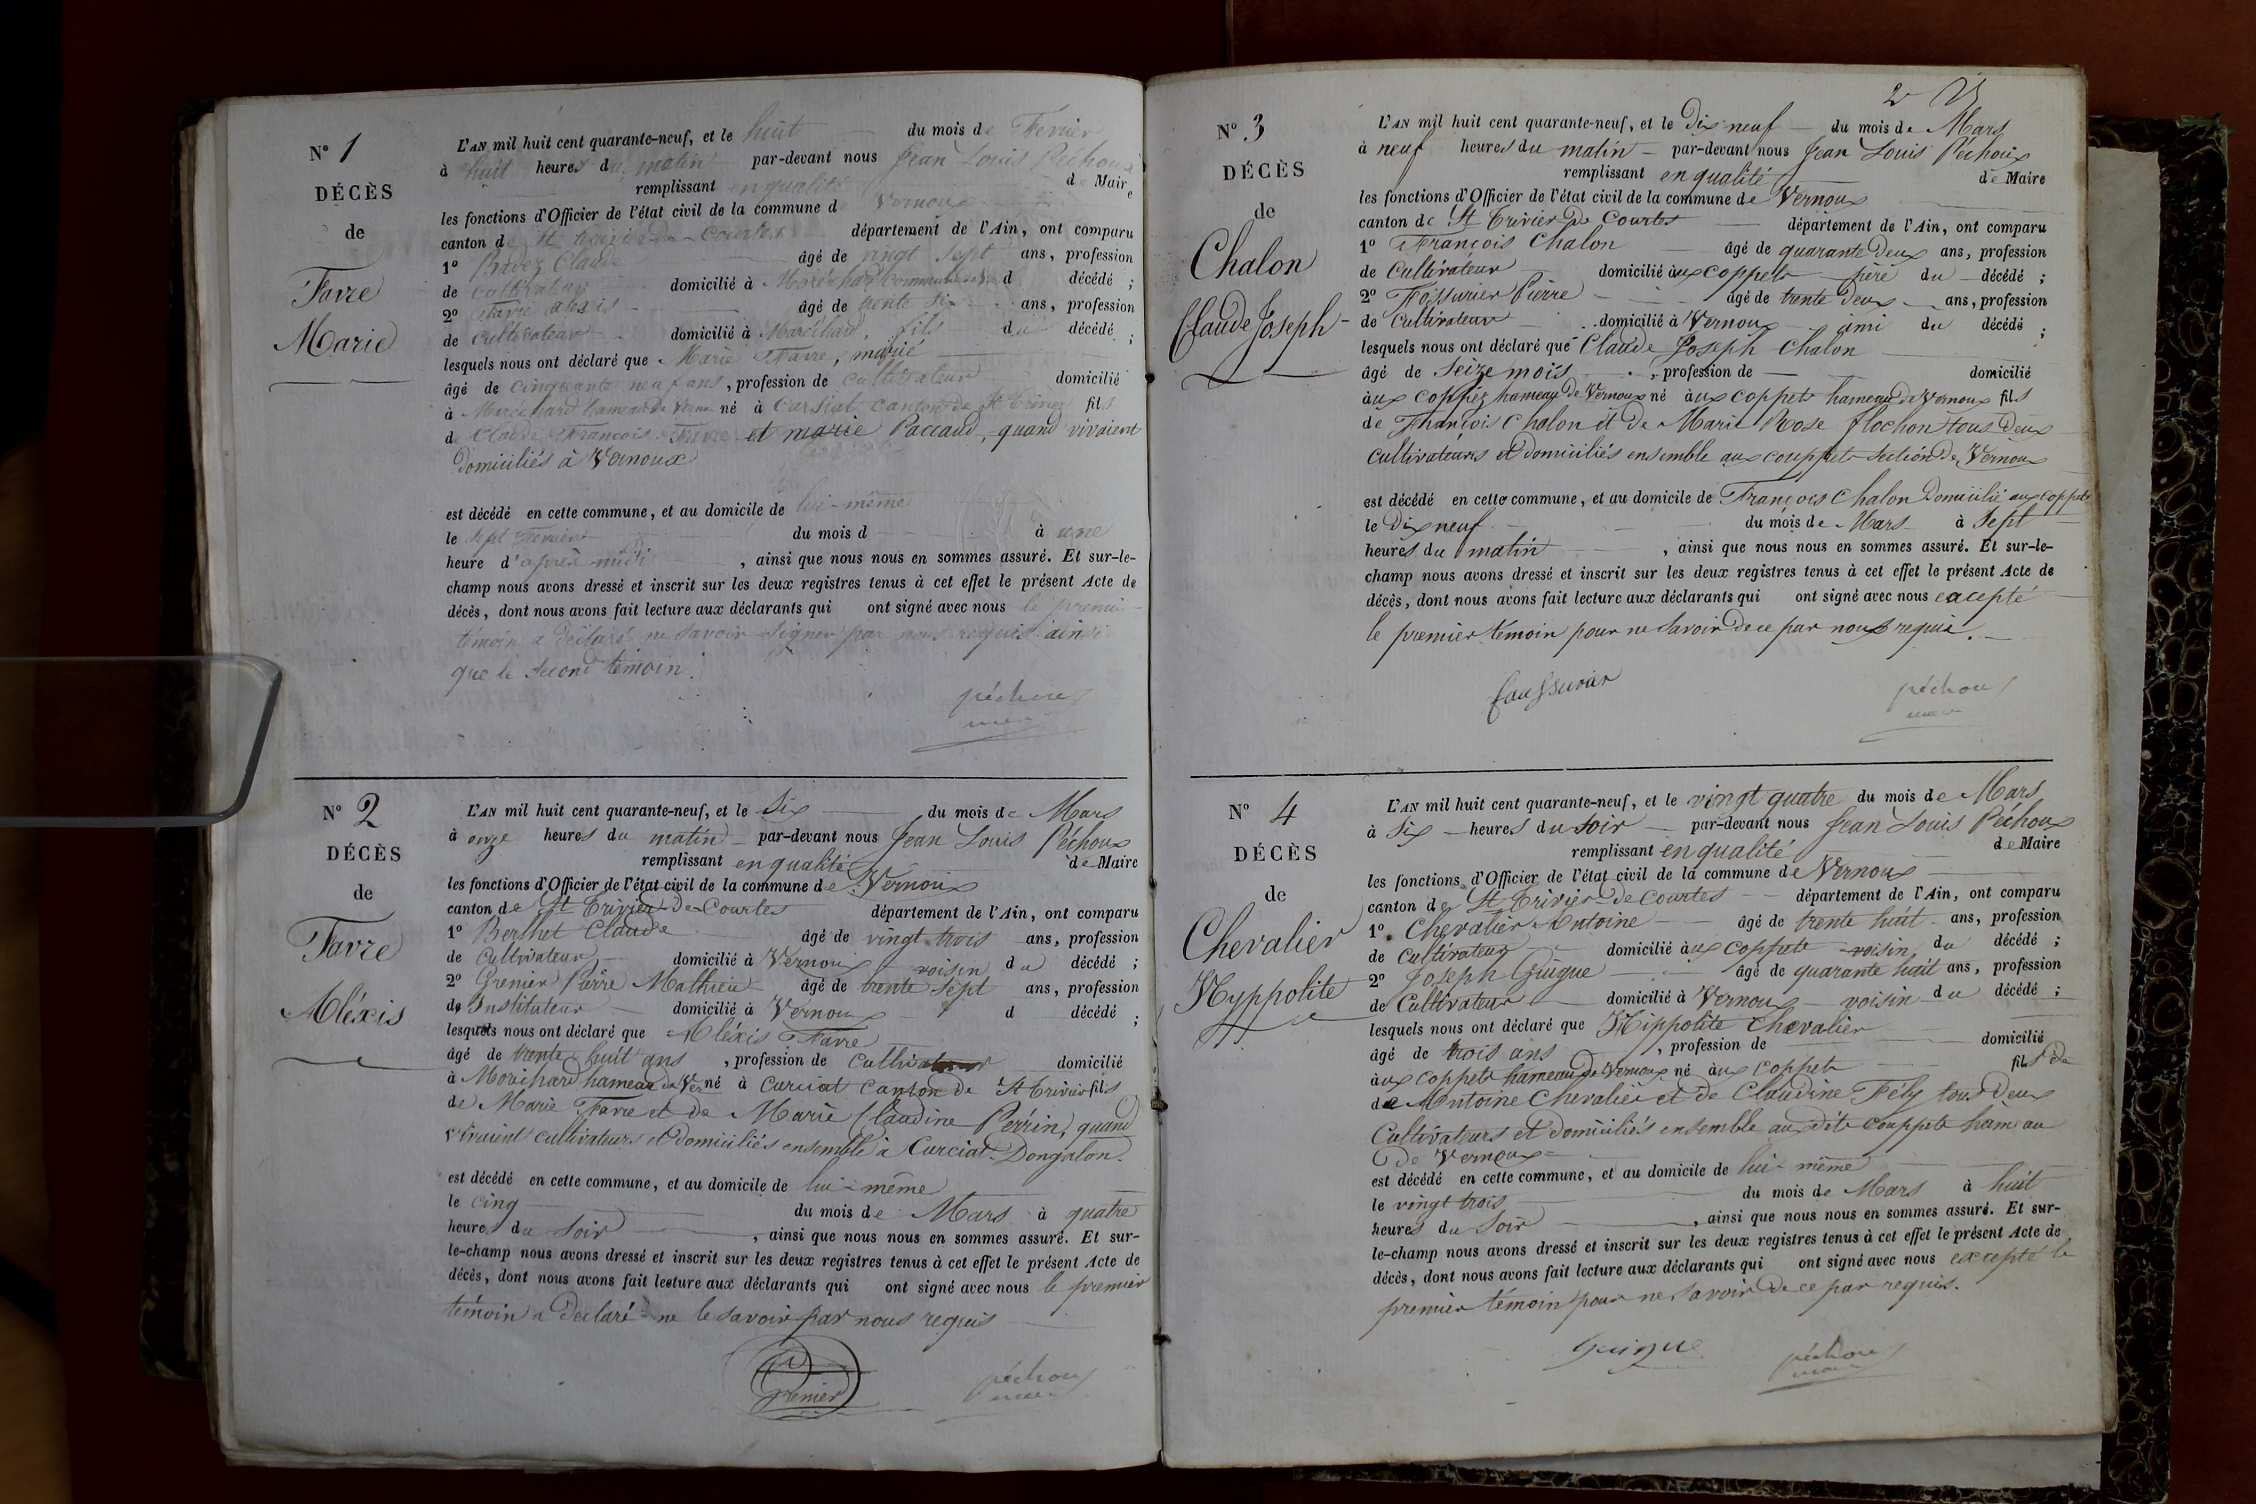 N° 1
DÉCÈS
de
Favre
Marie
L'AN mil huit cent quarante-neuf, et le huit du mois de Février
à huit heures du matin par-devant nous Jean Louis Péchoux
remplissant en qualité de Maire
les fonctions d'Officier de l'état civil de la commune d Vernoux
canton de St trivier de Courtes département de l'Ain, ont comparu
1° Claude âgé de vingt sept ans, profession
de cultivateur domicilié à d décédé ;
2° Favre alexis âgé de trente six ans, profession
de cultivateur domicilié à Maréchard, fils du décédé ;
lesquels nous ont déclaré que Marie Favre, marié
âgé de cinquante neuf ans, profession de cultivateur domicilié
à Maréchard hameau de né à Curciat canton de St Trivier fils
de Claude François Favre et marie Paccaud, quand vivaient
domiciliés à Vernoux
est décédé en cette commune, et au domicile de lui-même
le sept Février du mois d à une
heure d'après midi , ainsi que nous nous en sommes assuré. Et sur-le-
champ nous avons dressé et inscrit sur les deux registres tenus à cet effet le présent Acte de
décès, dont nous avons fait lecture aux déclarants qui ont signé avec nous le premier
témoin a déclaré ne savoir signer par nous requis ainsi
que le second témoin.
péchoux
maire
N° 2
DÉCÈS
de
Favre
Aléxis
L'AN mil huit cent quarante-neuf, et le six du mois de Mars
à onze heures du matin par-devant nous Jean Louis Péchoux
remplissant en qualité de Maire
les fonctions d'Officier de l'état civil de la commune de Vernoux
canton de St Trivier de Courtes département de l'Ain, ont comparu
1° Berthet Claude âgé de vingt trois ans, profession
de cultivateur domicilié à Vernoux voisin du décédé ;
2° Grenier Pierre Mathieu âgé de trente sept ans, profession
de Instituteur domicilié à Vernoux d décédé ;
lesquels nous ont déclaré que Aléxis Favre
âgé de trente huit ans , profession de cultivateur domicilié
à hameau de Ver né à curciat canton de St Trivier fils
de Marie Favre et de Marie Claudine Perrin, quand
vivaient cultivateurs et domiciliés ensemble à Curciat-Dongalon.
est décédé en cette commune, et au domicile de lui-même
le cinq du mois de Mars à quatre
heures du soir , ainsi que nous nous en sommes assuré. Et sur-
le-champ nous avons dressé et inscrit sur les deux registres tenus à cet effet le présent Acte de
décès, dont nous avons fait lecture aux déclarants qui ont signé avec nous le premier
témoin a déclaré ne le savoir par nous requis
Grenier
péchoux
maire
2
N° 3
DÉCÈS
de
Chalon
Claude Joseph
L'AN mil huit cent quarante-neuf, et le dix neuf du mois de Mars
à neuf heures du matin par-devant nous Jean Louis Péchoux
remplissant en qualité de Maire
les fonctions d'Officier de l'état civil de la commune de Vernoux
canton de St Trivier de Courtes département de l'Ain, ont comparu
1° François Chalon âgé de quarante deux ans, profession
de Cultivateur domicilié aux coppets père du décédé ;
2° Fossurier Pierre âgé de trente deux ans, profession
de Cultivateur domicilié à Vernoux ami du décédé ;
lesquels nous ont déclaré que Claude Joseph Chalon
âgé de Seize mois , profession de domicilié
aux coppez hameau de Vernoux né aux coppets hameau de Vernoux fils
de François Chalon et de Marie Rose flochon tous deux
Cultivateurs et domiciliés ensemble aux couppets section de Vernoux
est décédé en cette commune, et au domicile de François Chalon domicilié aux coppets
le dix neuf du mois de Mars à sept
heures du matin , ainsi que nous nous en sommes assuré. Et sur-le-
champ nous avons dressé et inscrit sur les deux registres tenus à cet effet le présent Acte de
décès, dont nous avons fait lecture aux déclarants qui ont signé avec nous excepté
le premier témoin pour ne savoir de ce par nous requis.
faussurier
péchoux
maire
N° 4
DÉCÈS
de
Chevalier
Hyppolite
L'AN mil huit cent quarante-neuf, et le vingt quatre du mois de Mars
à six heures du soir par-devant nous Jean Louis Péchoux
remplissant en qualité de Maire
les fonctions d'Officier de l'état civil de la commune de Vernoux
canton de St Trivier de Courtes département de l'Ain, ont comparu
1° Chevalier Antoine âgé de trente huit ans, profession
de cultivateur domicilié aux coppets voisin du décédé ;
2° Joseph Guigue âgé de quarante huit ans, profession
de Cultivateur domicilié à Vernoux voisin du décédé ;
lesquels nous ont déclaré que Hippolite Chevalier
âgé de trois ans , profession de domicilié
aux coppets hameau de Vernoux né aux coppets fils de
de Antoine Chevalier et de Claudine Fély tous deux
Cultivateurs et domiciliés ensemble aux dits couppets hameau
de Vernoux
est décédé en cette commune, et au domicile de lui-même
le vingt trois du mois de Mars à huit
heures du soir , ainsi que nous nous en sommes assuré. Et sur-
le-champ nous avons dressé et inscrit sur les deux registres tenus à cet effet le présent Acte de
décès, dont nous avons fait lecture aux déclarants qui ont signé avec nous excepté le
premier témoin pour ne savoir de ce par requis.
Guigue
péchoux
maire